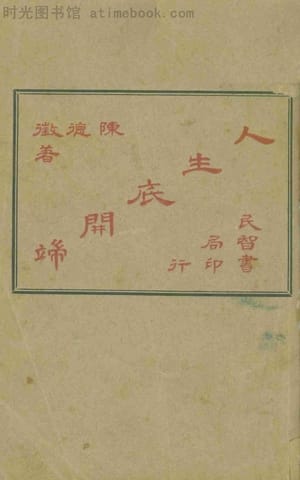 时光图书馆 atimebook.com
人生底開端
陳德徵著
民智書局印行